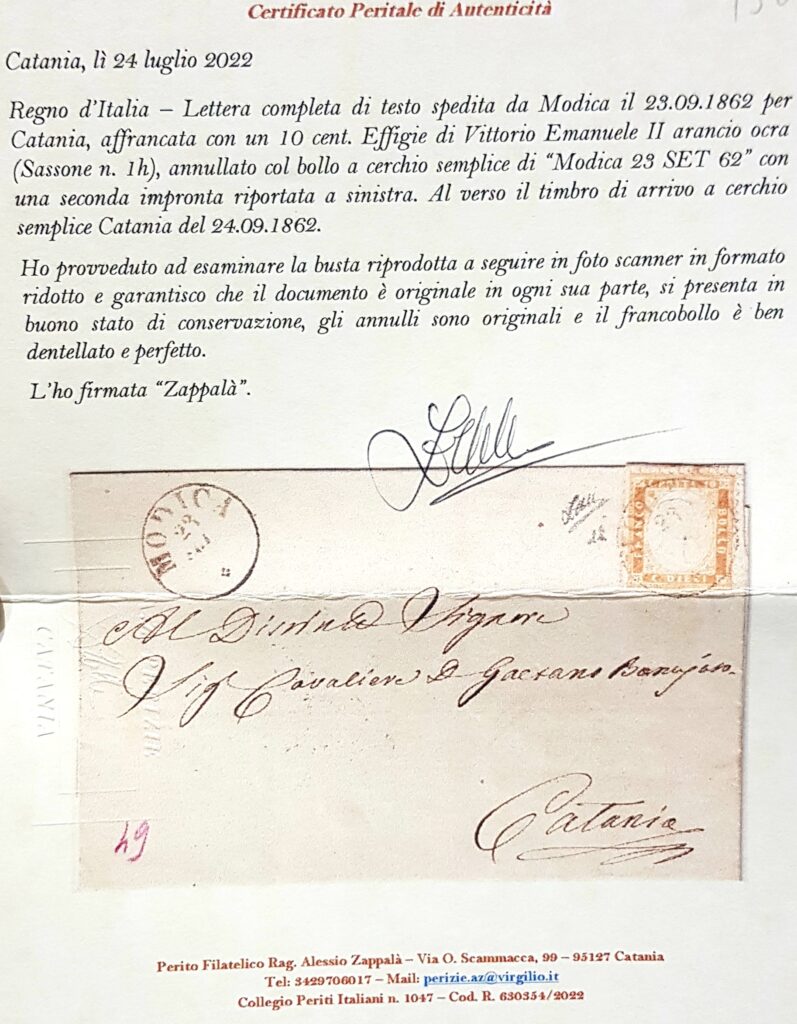 Certificato Peritale di Autenticità
Catania, lì 24 luglio 2022
Regno d'Italia – Lettera completa di testo spedita da Modica il 23.09.1862 per
Catania, affrancata con un 10 cent. Effigie di Vittorio Emanuele II arancio ocra
(Sassone n. 1h), annullato col bollo a cerchio semplice di “Modica 23 SET 62” con
una seconda impronta riportata a sinistra. Al verso il timbro di arrivo a cerchio
semplice Catania del 24.09.1862.
Ho provveduto ad esaminare la busta riprodotta a seguire in foto scanner in formato
ridotto e garantisco che il documento è originale in ogni sua parte, si presenta in
buono stato di conservazione, gli annulli sono originali e il francobollo è ben
dentellato e perfetto.
L'ho firmata “Zappalà”.
MODICA
23
FRANCO
BOLLO
C. DIECI
Al Distinto Signore
Sig Cavaliere D Gaetano
Catania
49
CATANIA
Perito Filatelico Rag. Alessio Zappalà – Via O. Scammacca, 99 – 95127 Catania
Tel: 3429706017 – Mail: perizie.az@virgilio.it
Collegio Periti Italiani n. 1047 – Cod. R. 630354/2022